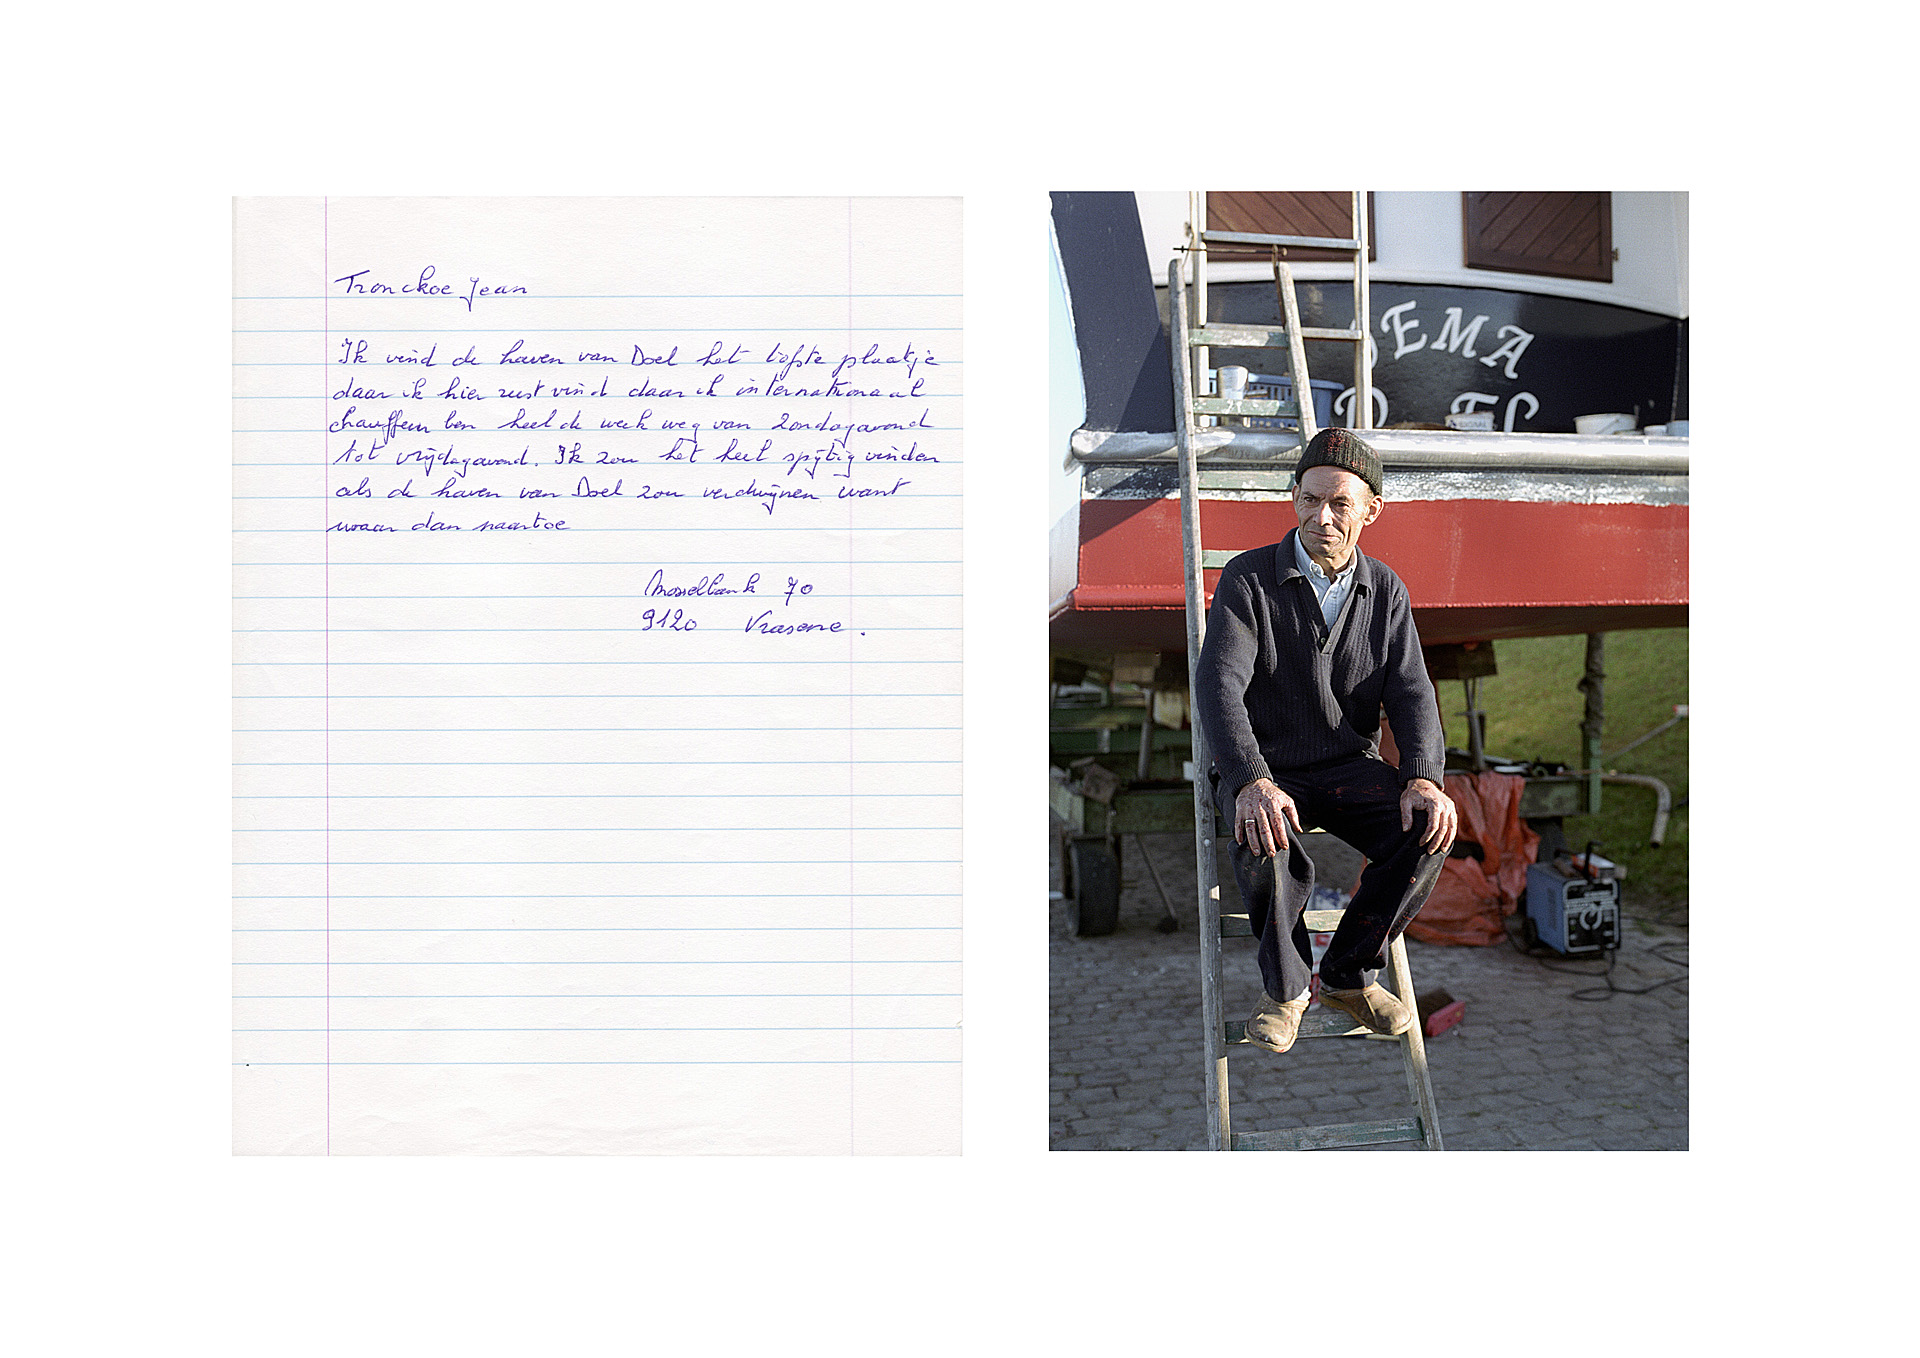 Tronckoe Jean
Ik vind de haven van Doel het liefste plaatje
daar ik hier rust vind daar ik internationaal
chauffeur ben heel de week weg van Zondagavond
tot vrijdagavond. Ik zou het heel spijtig vinden
als de haven van Doel zou verdwijnen want
waar dan naartoe
Mosselbank 70
9120 Vrasene.
EMA